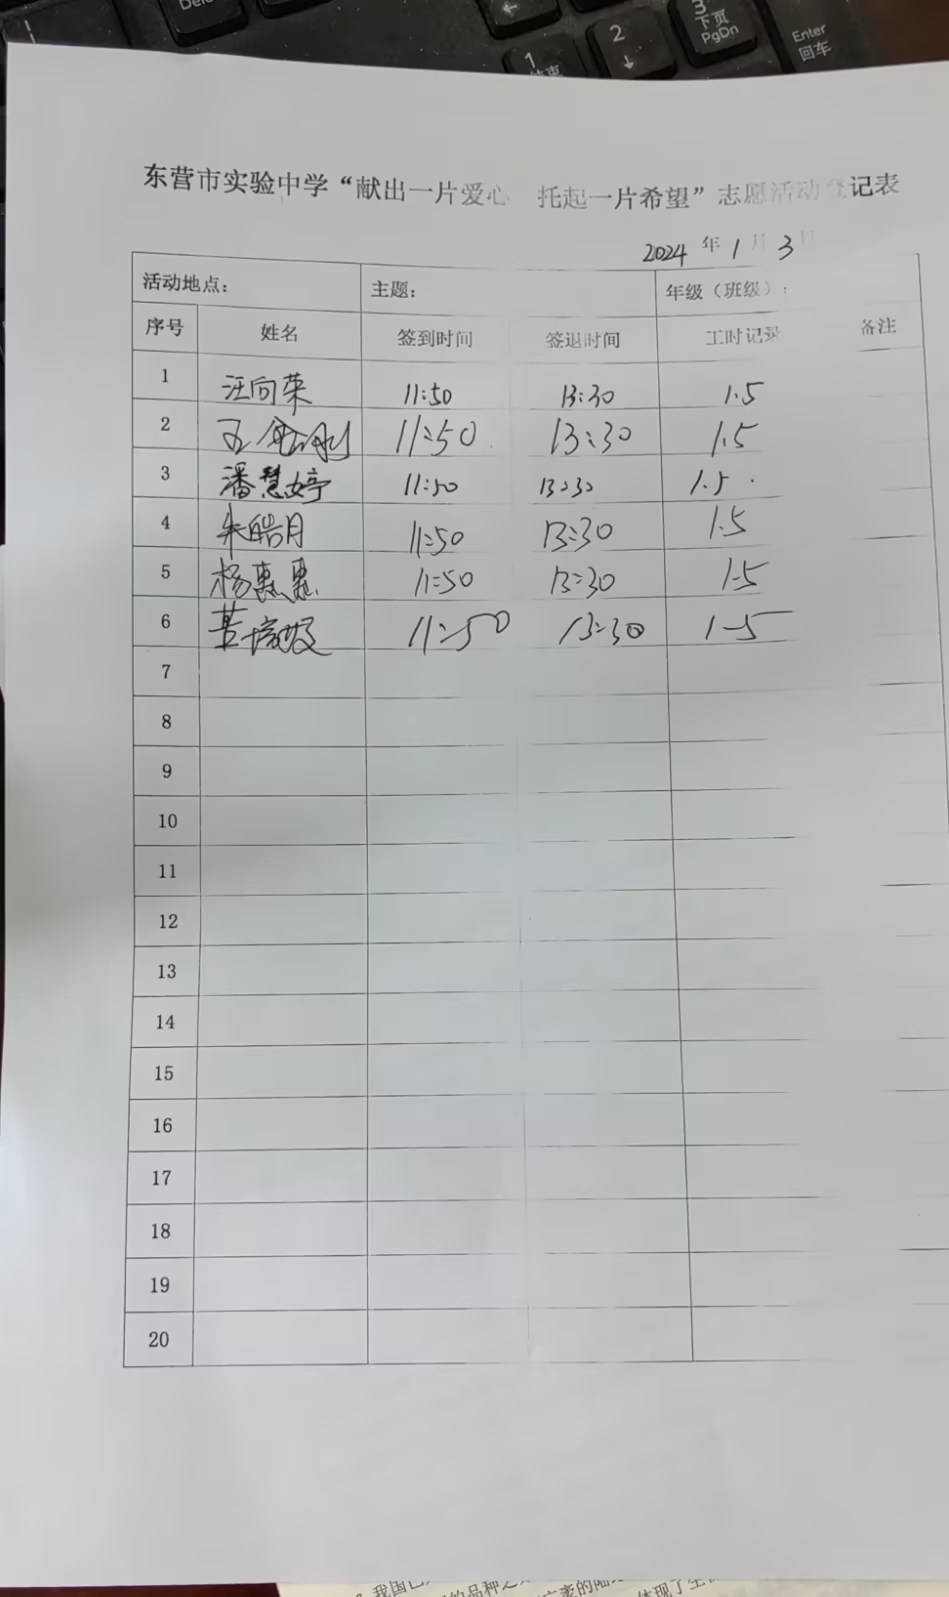 Dele
←
1
结束
2
↓
3
下页
PgDn
Enter
回车
东营市实验中学“献出一片爱心 托起一片希望”志愿活动登记表
2024 年 1 月 3 日
活动地点： 主题： 年级（班级）：
序号 姓名 签到时间 签退时间 工时记录 备注
1 汪向荣 11:50 13:30 1.5
2 11:50 13:30 1.5
3 潘慧婷 11:50 13:30 1.5
4 朱皓月 11:50 13:30 1.5
5 杨惠惠 11:50 13:30 1.5
6 11:50 13:30 1.5
7
8
9
10
11
12
13
14
15
16
17
18
19
20
我国
的品种之
体现了生